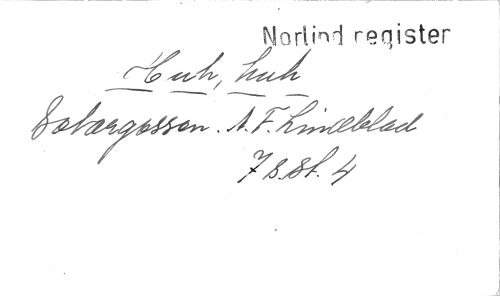 Norlind register
Huh, huh
Sotargossen. A. F. Lindblad
7 s. st. 4